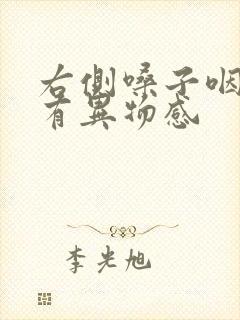 右側嗓子咽
有異物感
李光旭